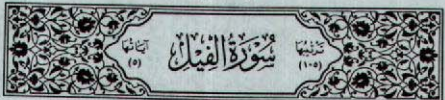 ترتيبها
(١٠٥)
سُورَةُ الْفِيلِ
آياتها
(٥)